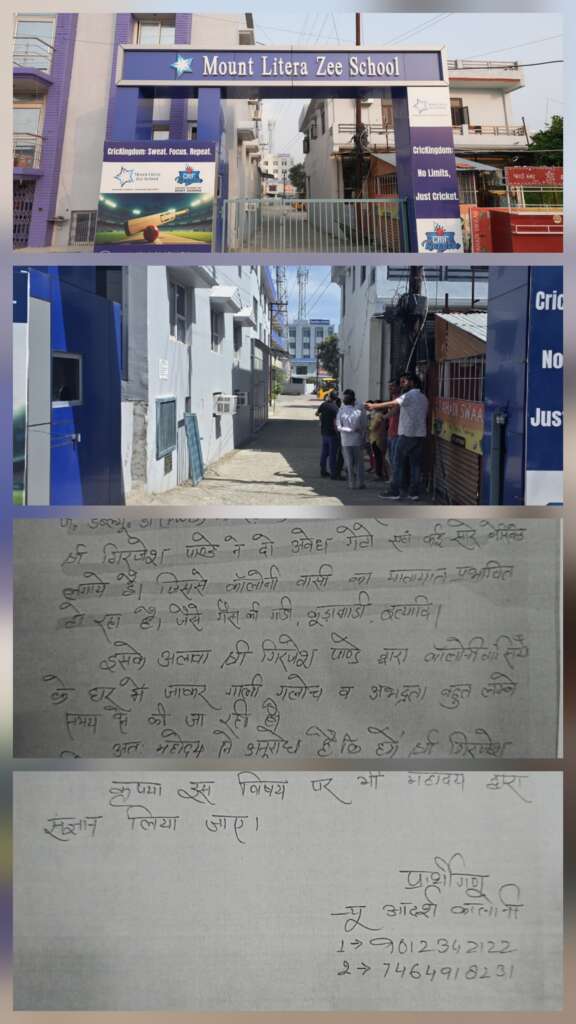 Mount Litera Zee School
CricKingdom: Sweat. Focus. Repeat.
Mount Litera
Zee School
CricKingdom:
No Limits,
Just Cricket.
Cric
No
Just
श्री गिरजेश पाण्डे ने दो अवैध गेटो एवं कई सारे
लगाये है। जिससे कॉलोनी वासी का यातायात प्रभावित
हो रहा है। जैसे गैस की गाडी, कूडा गाडी, इत्यादि।
इसके अलावा श्री गिरजेश पाण्डे द्वारा कॉलोनी वासियों
के घर मे जाकर गाली गलोच व अभद्रता बहुत लम्बे
समय से की जा रही है।
अतः महोदय से अनुरोध है कि श्री गिरजेश
कृपया इस विषय पर भी महोदय द्वारा
संज्ञान लिया जाए।
प्रार्थीगण
न्यू आदर्श कालोनी
1→ 9012342122
2→ 7464918231